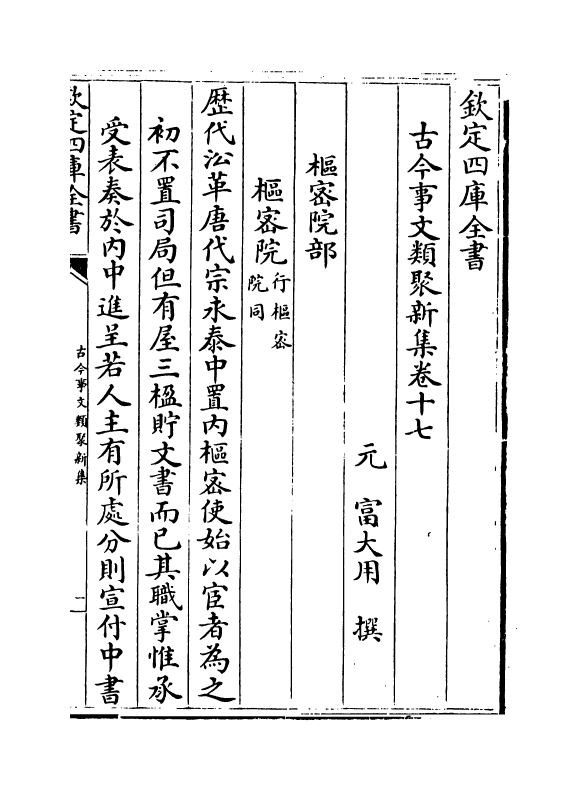 欽定四庫全書
古今事文類聚新集卷十七
元 富大用 撰
樞密院部
樞密院行樞密院同
歷代沿革唐代宗永泰中置内樞密使始以宦者為之
初不置司局但有屋三楹貯文書而已其職掌惟承
受表奏於内中進呈若人主有所處分則宣付中書
欽定四庫全書
古今事文類聚新集